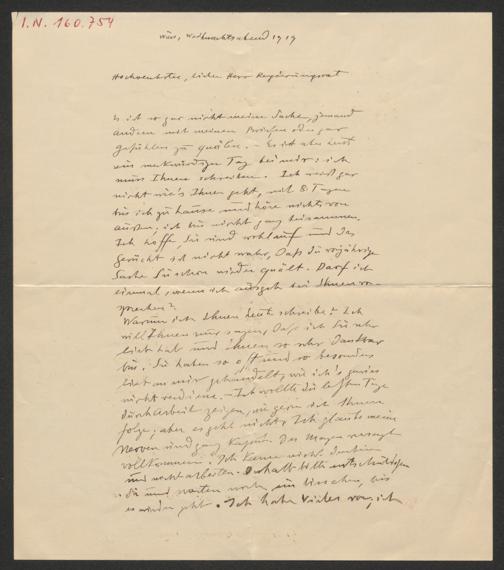 I.N. 160.754
Wien, Weihnachtsabend 1919
Hochverehrter, lieber Herr Regierungsrat
Es ist so gar nicht meine Sache, jemand
andern mit meinen Briefen oder gar
Gefühlen zu quälen. – Es ist aber heut
ein merkwürdiger Tag bei mir: ich
muss Ihnen schreiben. Ich weiß gar
nicht wie's Ihnen geht, seit 8 Tagen
bin ich zu Hause und höre nichts von
außen, ich bin nicht ganz beisammen.
Ich hoffe, Sie sind wohlauf und das
Gerücht ist nicht wahr, daß die vorjährige
Sache Sie schon wieder quält. Darf ich
einmal, wenn ich ausgeh bei Ihnen vor-
sprechen?
Warum ich Ihnen heute schreibe? – Ich
will Ihnen nur sagen, daß ich Sie sehr
lieb hab und Ihnen so sehr dankbar
bin. Sie haben so oft und so besonders
lieb an mir gehandelt, wie ich's gewiss
nicht verdiene. – Ich wollte die letzten Tage
durch Arbeit zeigen, wie gern ich Ihnen
folge; aber es geht nicht. Ich glaube meine
Nerven sind ganz kaput. Der Magen versagt
vollkommen. Ich kann nicht denken
und nicht arbeiten. Deshalb bitte entschuldigen
Sie und warten noch ein bisschen, bis
es wieder geht. Ich habe Vieles vor, ich